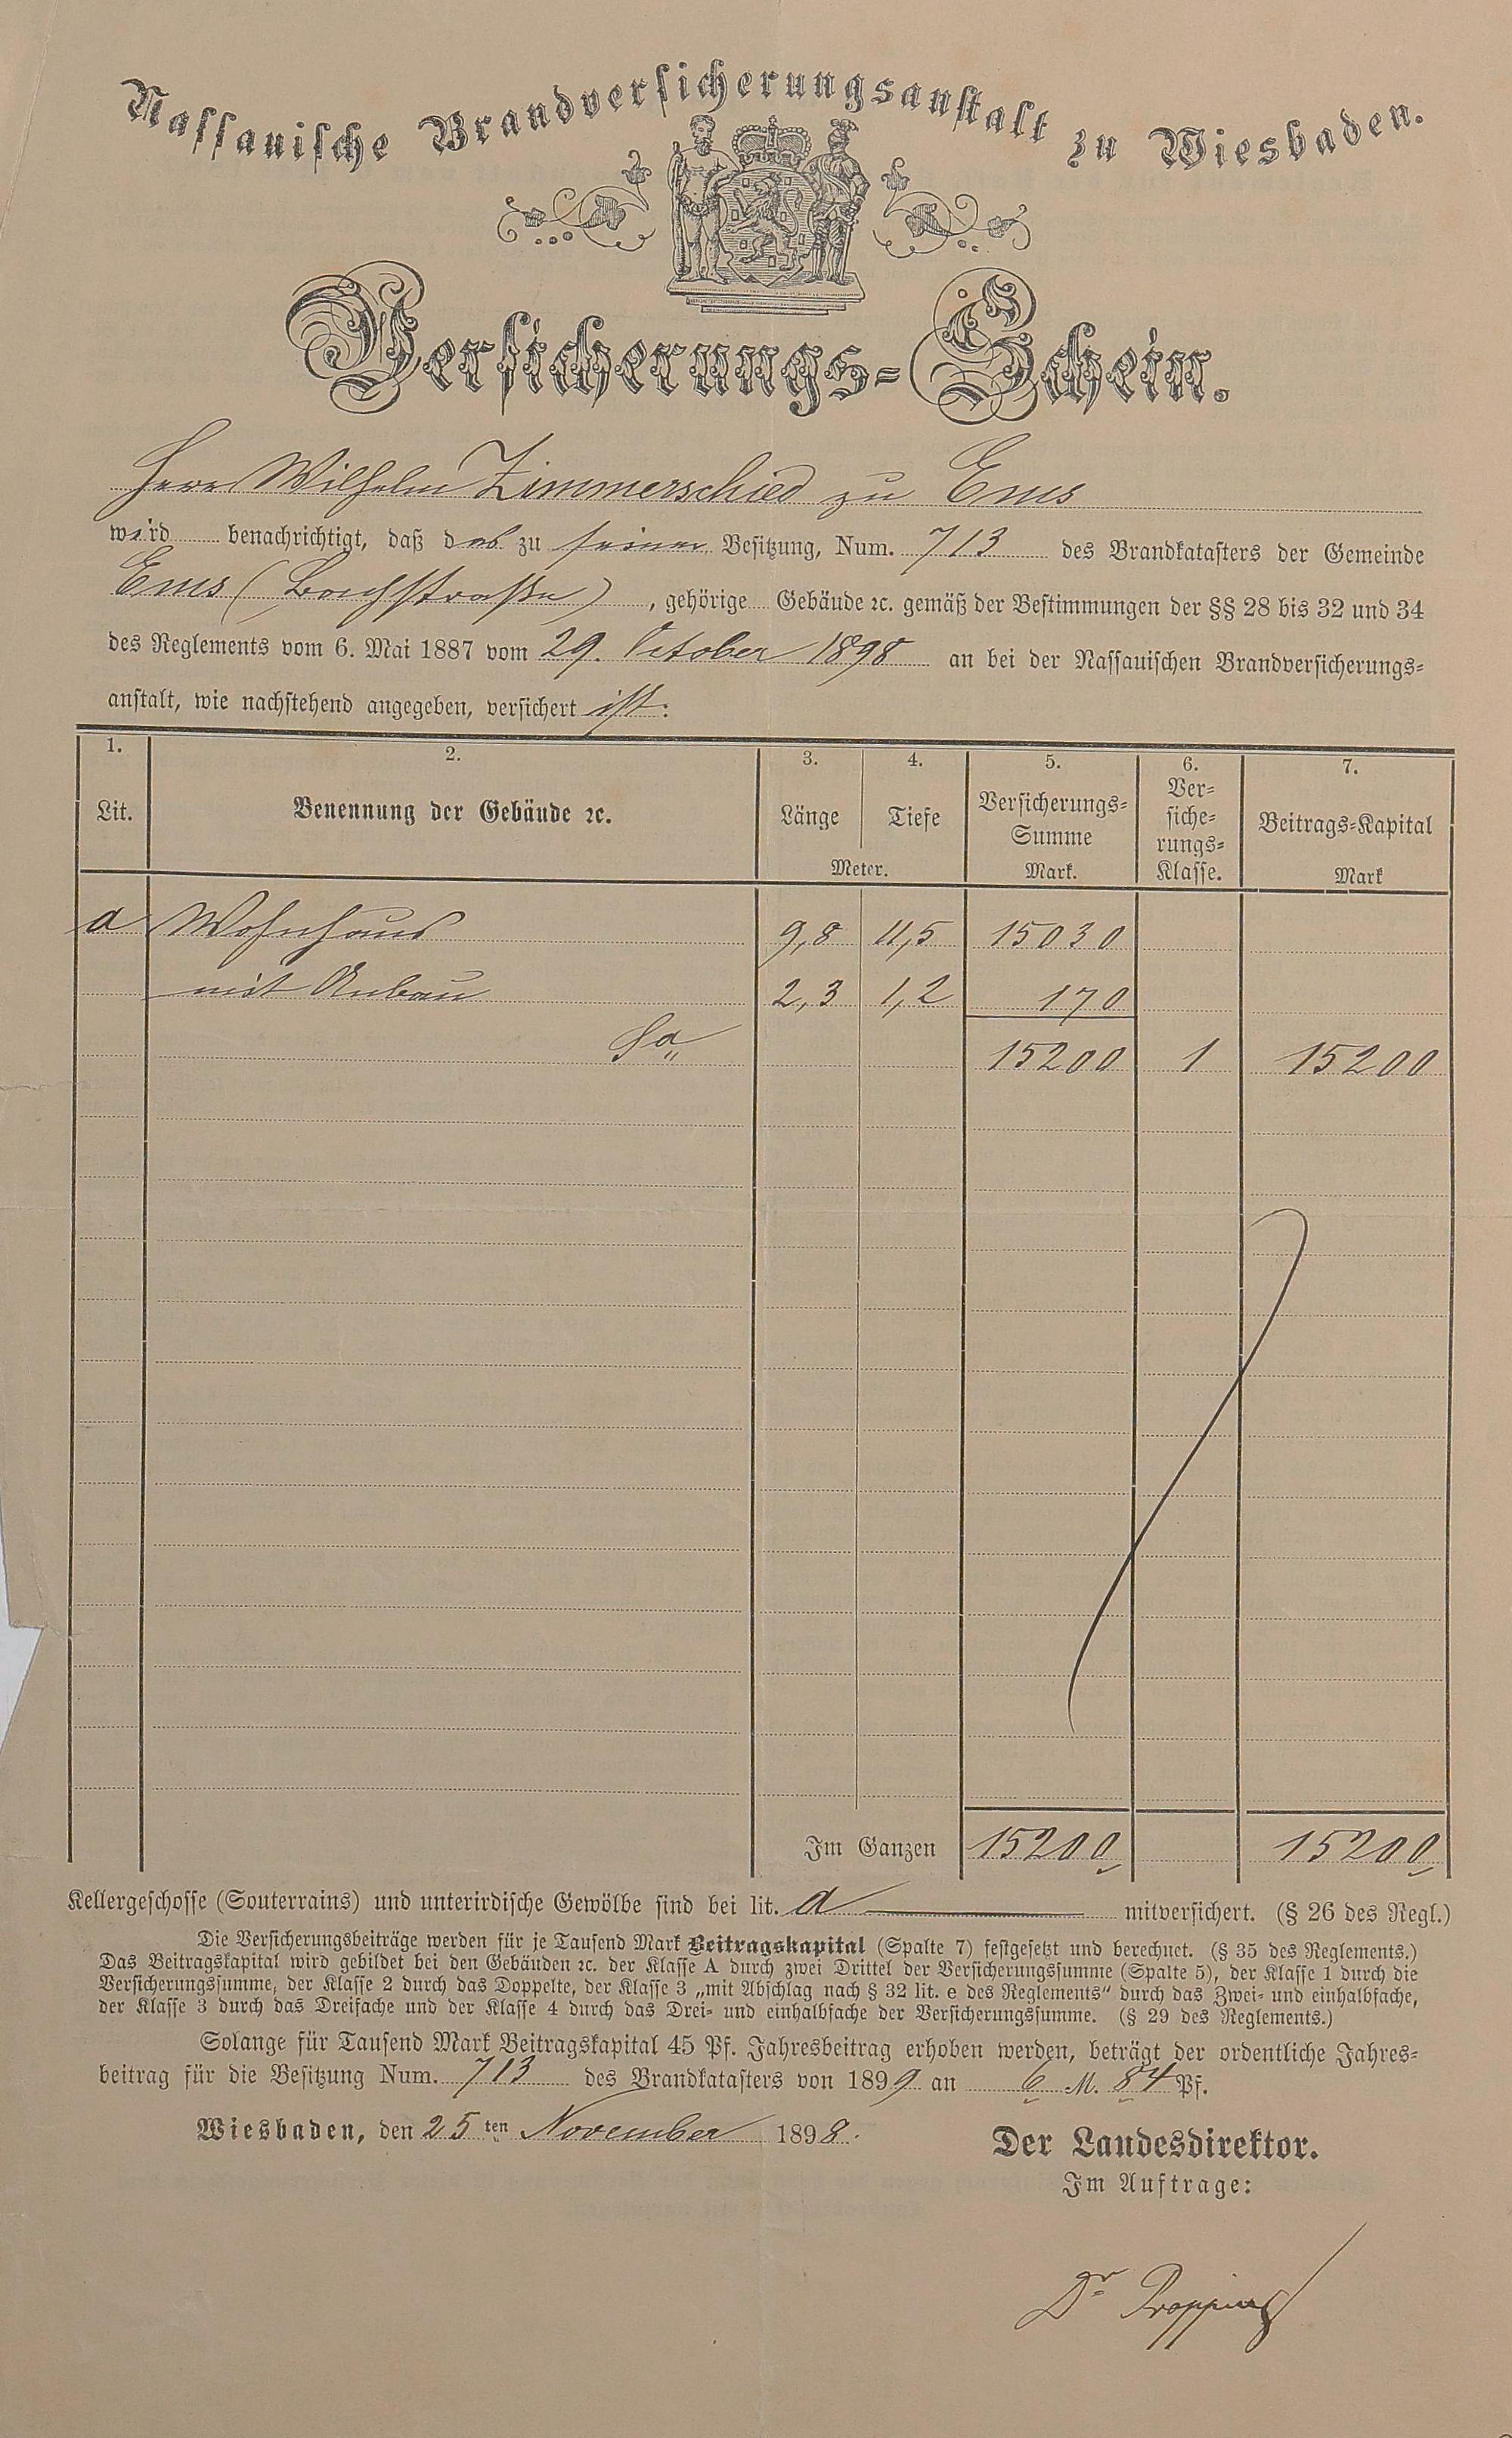 Nassauische Brandversicherungsanstalt zu Wiesbaden.
Versicherungs-Schein.
Herr Wilhelm Zimmerschied zu Ems
wird benachrichtigt, daß das zu seiner Besitzung, Num. 713 des Brandkatasters der Gemeinde
Ems (Bachstraße), gehörige Gebäude ꝛc. gemäß der Bestimmungen der §§ 28 bis 32 und 34
des Reglements vom 6. Mai 1887 vom 29. October 1898 an bei der Nassauischen Brandversicherungs-
anstalt, wie nachstehend angegeben, versichert ist:
1. 2. 3. 4. 5. 6. 7.
Lit. Benennung der Gebäude ꝛc. Länge Tiefe Meter. Versicherungs-Summe Mark. Ver-siche-rungs-Klasse. Beitrags-Kapital Mark
a Wohnhaus 9,8 11,5 15030
mit Anbau 2,3 1,2 170
Sa 15200 1 15200
Im Ganzen 15200 15200
Kellergeschosse (Souterrains) und unterirdische Gewölbe sind bei lit. a mitversichert. (§ 26 des Regl.)
Die Versicherungsbeiträge werden für je Tausend Mark Beitragskapital (Spalte 7) festgesetzt und berechnet. (§ 35 des Reglements.)
Das Beitragskapital wird gebildet bei den Gebäuden ꝛc. der Klasse A durch zwei Drittel der Versicherungssumme (Spalte 5), der Klasse 1 durch die
Versicherungssumme, der Klasse 2 durch das Doppelte, der Klasse 3 „mit Abschlag nach § 32 lit. e des Reglements“ durch das Zwei- und einhalbfache,
der Klasse 3 durch das Dreifache und der Klasse 4 durch das Drei- und einhalbfache der Versicherungssumme. (§ 29 des Reglements.)
Solange für Tausend Mark Beitragskapital 45 Pf. Jahresbeitrag erhoben werden, beträgt der ordentliche Jahres-
beitrag für die Besitzung Num. 713 des Brandkatasters von 1899 an 6 M. 84 Pf.
Wiesbaden, den 25ten November 1898.
Der Landesdirektor.
Im Auftrage:
Dr